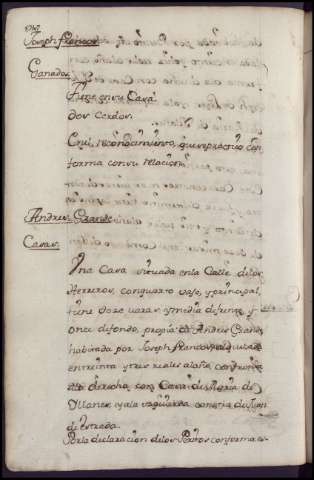 Joseph franco
Ganados
Tiene en su Casa
dos Cerdos.
En el reconozimiento, que se practico con
forma con su relazion
Andres Grande
Casas
Una Casa situada en la Calle de los
Herreros, con quarto vajo, y principal,
tiene doze varas y media de frente, y
onze de fondo, propia de Andres Grande
habitada por Joseph franco regulada
en treinta y tres reales al año confronta
a la derecha, con Casa de Maria de
Ollanes, y a la izquierda con otra de Juan
de estrada.
Por la declarazion de los Peritos conforma